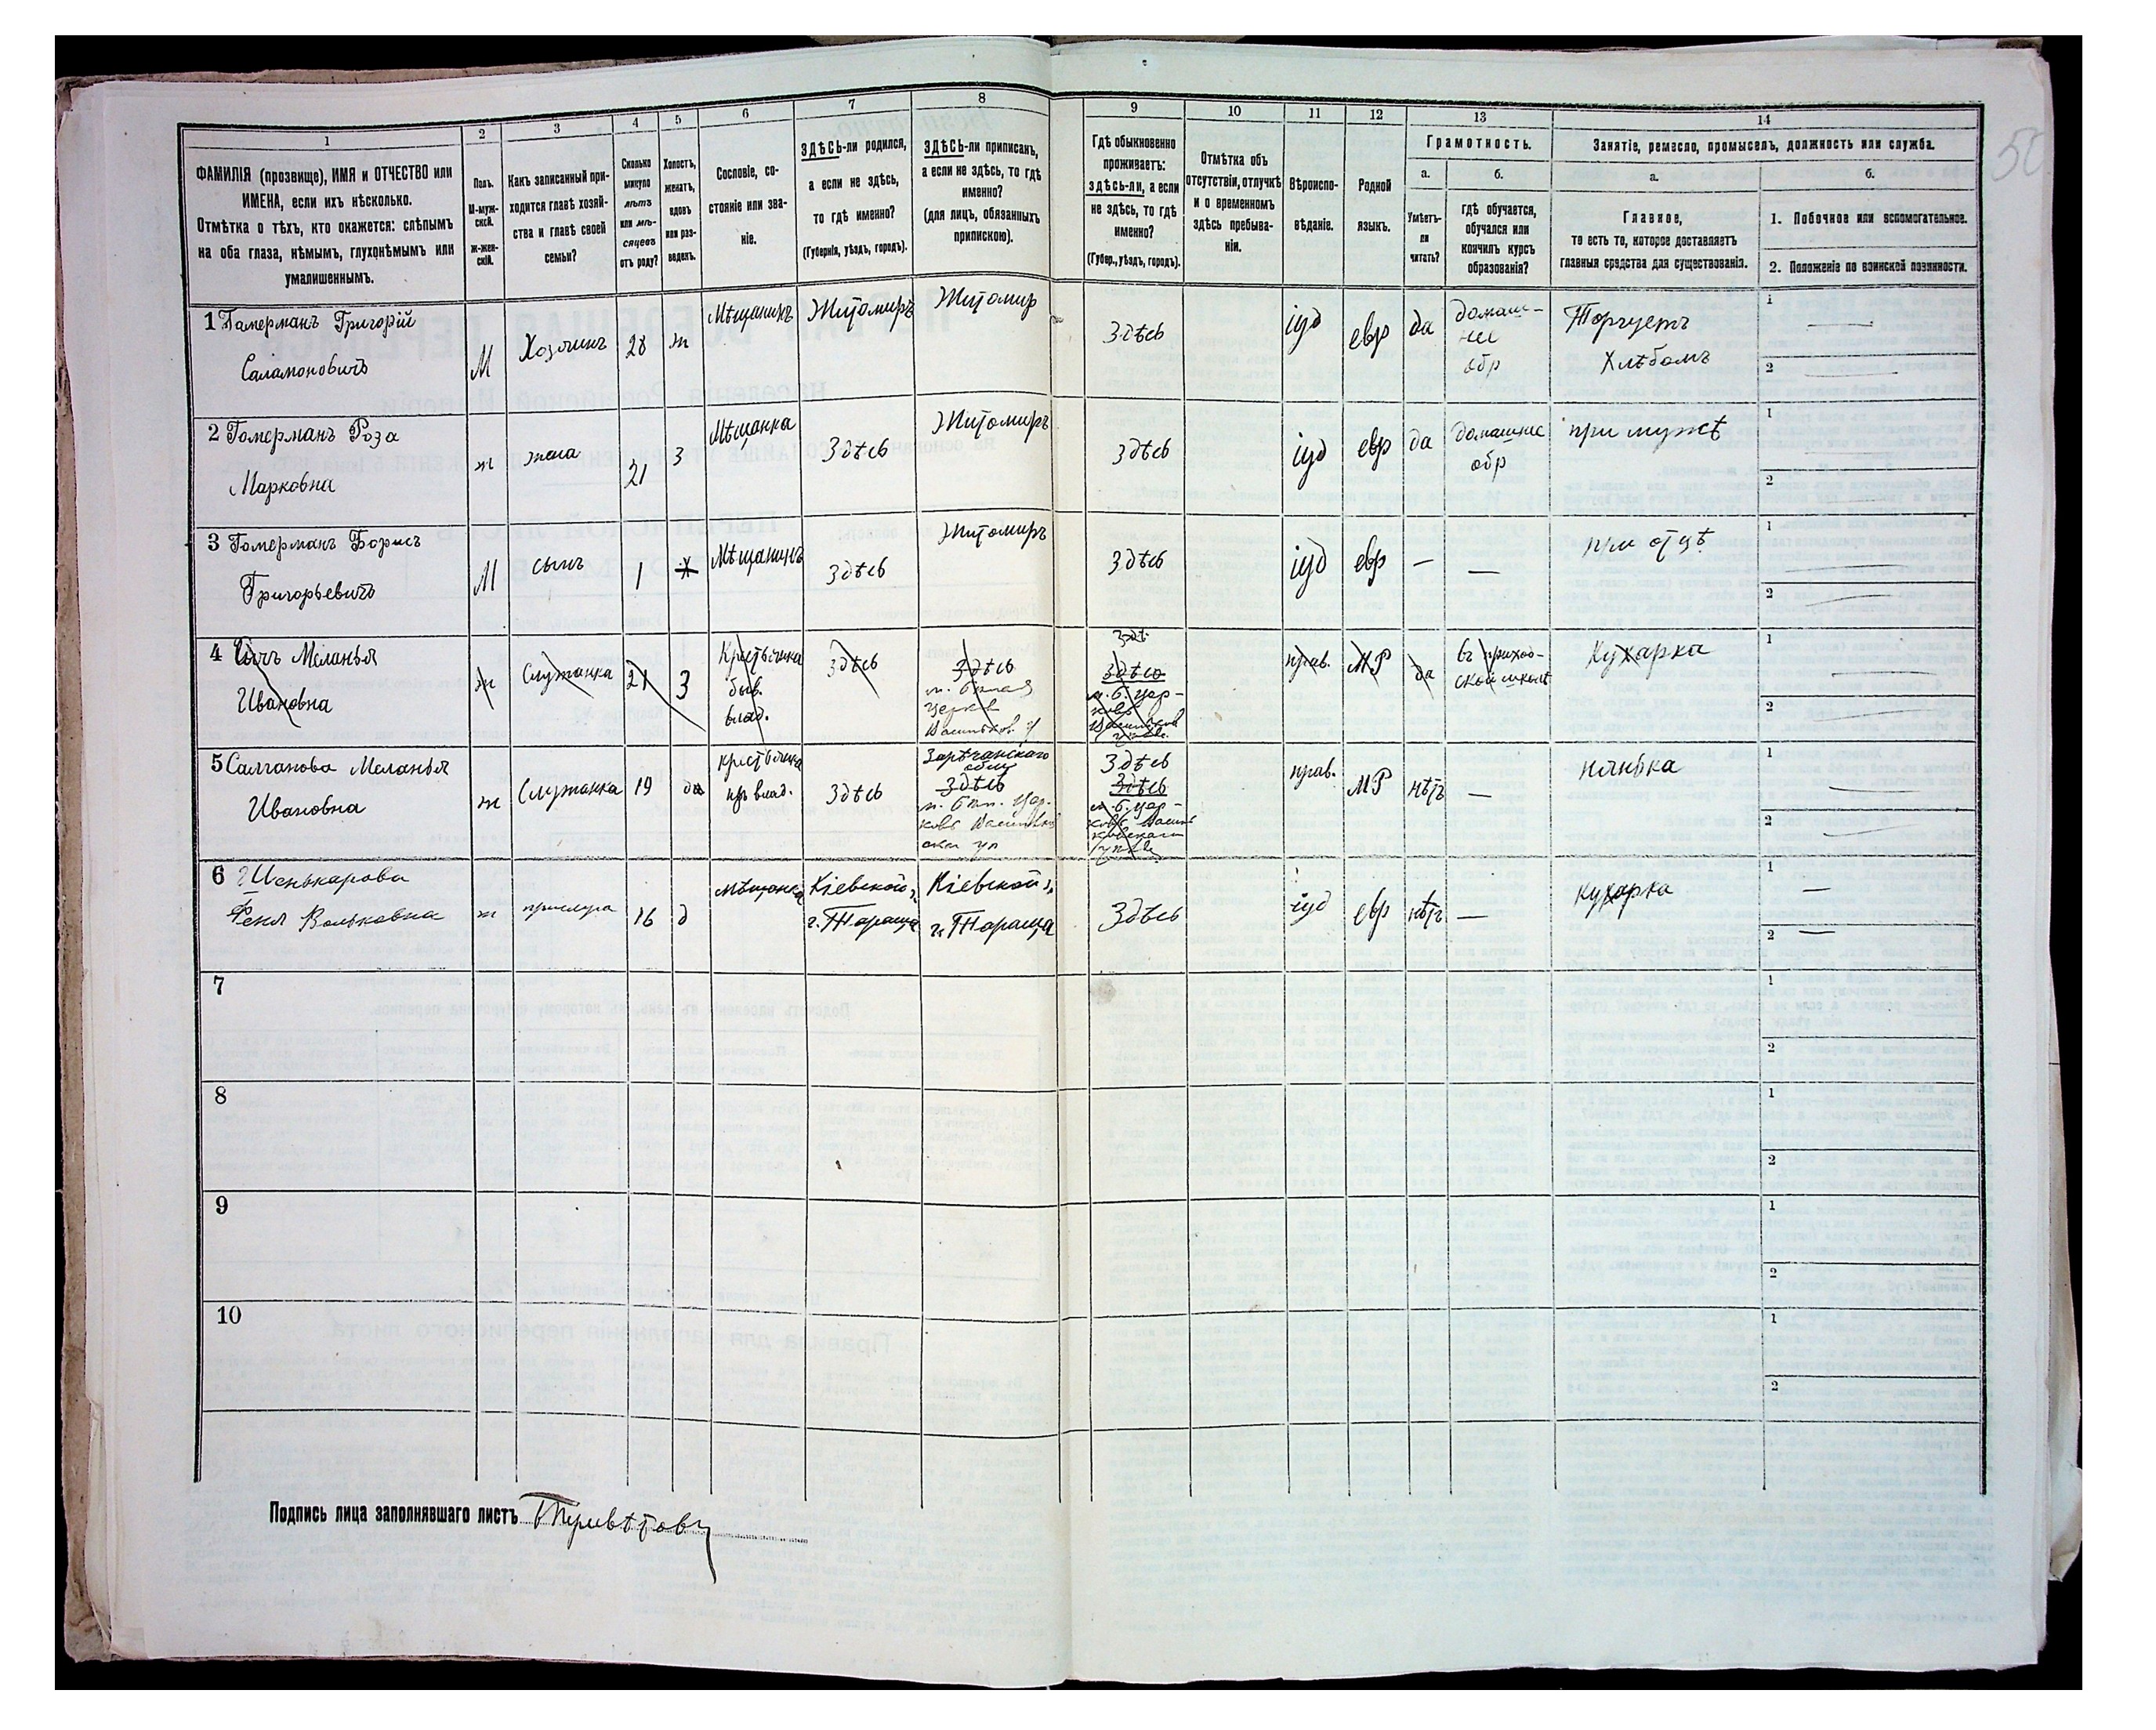 1
2
3
4
5
6
7
8
ФАМИЛІЯ (прозвище), ИМЯ и ОТЧЕСТВО или
ИМЕНА, если ихъ нѣсколько.
Отмѣтка о тѣхъ, кто окажется: слѣпымъ
на оба глаза, нѣмымъ, глухонѣмымъ или
умалишеннымъ.
Полъ.
М-муж-
ской.
ж-жен-
скій.
Какъ записанный при-
ходится главѣ хозяй-
ства и главѣ своей
семьи?
Сколько
минуло
лѣтъ
или мѣ-
сяцевъ
отъ роду?
Холостъ,
женатъ,
вдовъ
или раз-
веденъ.
Сословіе, со-
стояніе или зва-
ніе.
ЗДѢСЬ-ли родился,
а если не здѣсь,
то гдѣ именно?
(Губернія, уѣздъ, городъ).
ЗДѢСЬ-ли приписанъ,
а если не здѣсь, то гдѣ
именно?
(для лицъ, обязанныхъ
припискою).
9
10
11
12
13
14
Гдѣ обыкновенно
проживаетъ:
здѣсь-ли, а если
не здѣсь, то гдѣ
именно?
(Губер., уѣздъ, городъ).
Отмѣтка объ
отсутствіи, отлучкѣ
и о временномъ
здѣсь пребыва-
ніи.
Вѣроиспо-
вѣданіе.
Родной
языкъ.
Грамотность.
а.
Умѣетъ-
ли
читать?
б.
гдѣ обучается,
обучался или
кончилъ курсъ
образованія?
Занятіе, ремесло, промыселъ, должность или служба.
а.
Главное,
то есть то, которое доставляетъ
главныя средства для существованія.
б.
1. Побочное или вспомогательное.
2. Положеніе по воинской повинности.
50
1 Гамерманъ Григорій
Саламоновичъ
М
Хозяинъ
28
ж
Мѣщанинъ
Житомиръ
Житомир
Здѣсь
іуд
евр
да
домаш-
нее
обр
Торгуетъ
Хлѣбомъ
1
2
2 Гамерманъ Роза
Марковна
ж
жена
21
З
Мѣщанка
Здѣсь
Житомиръ
Здѣсь
іуд
евр
да
домашнее
обр
при мужѣ
1
2
3 Гамерманъ Борисъ
Григорьевичъ
М
сынъ
1
х
Мѣщанинъ
Здѣсь
Житомиръ
Здѣсь
іуд
евр
—
—
при отцѣ
1
2
4 Меланья
Ивановна
ж
Служанка
21
З
Крестьянка
быв.
влад.
Здѣсь
Здѣсь
м. Бѣлая
Церковь
Здѣ
Здѣсь
м. Б. Цер-
ковь
прав.
МР
да
въ приход-
ской школѣ
Кухарка
1
2
5 Салганова Меланья
Ивановна
ж
Служанка
19
дѣ
крестьянка
влад.
Здѣсь
Зарѣчанскаго
общ
Здѣсь
Здѣсь
Здѣсь
м. Б. Цер-
ковь Василь
ковскаго
прав.
МР
нѣтъ
—
нянька
1
2
6 Шенькарова
Феня Вольковна
ж
прислуга
16
д
мѣщанка
Кіевской г.
г. Тараща
Кіевской г.
г. Тараща
Здѣсь
іуд
евр
нѣтъ
—
кухарка
1
—
2
—
7
1
2
8
1
2
9
1
2
10
1
2
Подпись лица заполнявшаго листъ